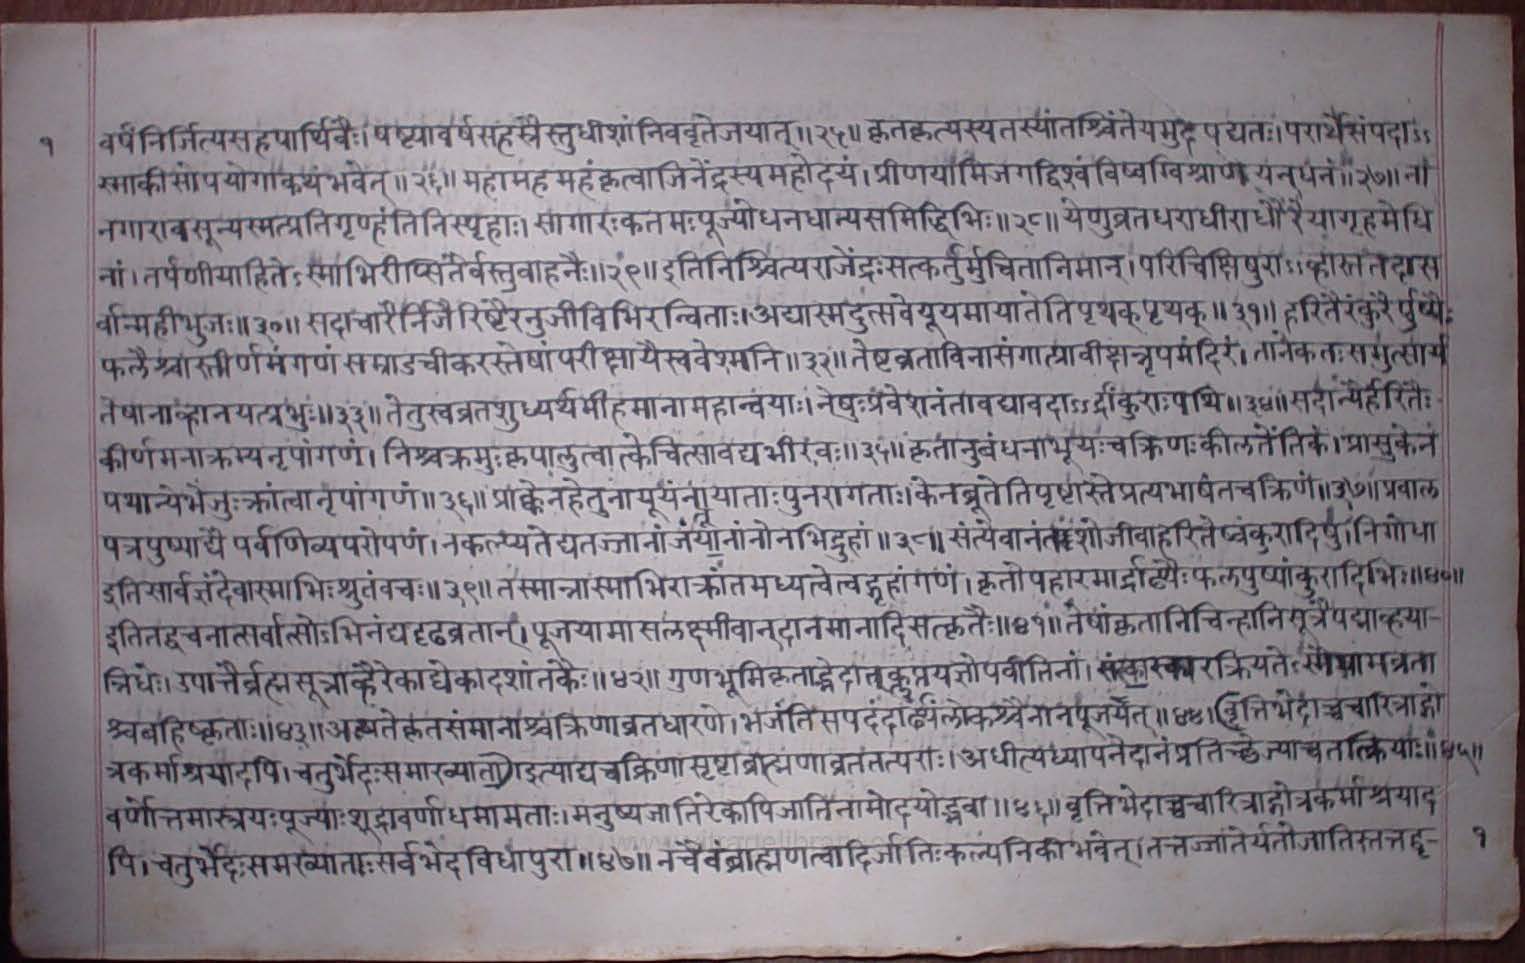 १ वर्षंनिर्जित्यसहपार्थिवैः।षष्ट्यावर्षसहस्रैस्तुधीशांनिववृतेजयात्॥२५॥कृतकृत्यस्यतस्यांतश्चिंतेयमुदपद्यतः।परार्थेसंपदाऽऽ
स्माकीसोपयोगाकथंभवेत्॥२६॥महामहमहंकृत्वाजिनेंद्रस्यमहोदयं।प्रीणयामिजगद्विश्वंविष्वग्विश्राणयन्धनं॥२७॥ना
नगारावसून्यस्मत्प्रतिगृण्हंतिनिस्पृहाः।सागारःकतमःपूज्योधनधान्यसमिद्धिभिः॥२८॥येणुव्रतधराधीराधौरेयागृहमेधि
नां।तर्पणीयाहितेऽस्माभिरीप्सितैर्वस्तुवाहनैः॥२९॥इतिनिश्चित्यराजेंद्रःसत्कर्तुर्मुचितानिमान्।परिचिक्षिपुराऽऽव्हास्ततदास
र्वान्महीभुजः॥३०॥सदाचारैर्निजैरिष्टैरनुजीविभिरन्विताः।अद्यास्मदुत्सवेयूयमायातेतिपृथक्पृथक्॥३१॥हरितैरंकुरैर्पुष्पैः
फलैश्चास्तीर्णमंगणंसम्राडचीकरस्तेषांपरीक्षायैस्ववेश्मनि॥३२॥तेष्टव्रताविनासंगात्प्रावीक्षन्नृपमंदिरं।तांनेकतःसमुत्सार्य
तेषानाव्हानयत्प्रभुः॥३३॥तेतुस्वव्रतशुध्यर्थमीहमानामहान्वयाः।नेषुःप्रवेशनंतावद्यावदाऽऽर्द्रांकुराःपथि॥३४॥सदान्यैर्हरितैः
कीर्णमनाक्रम्यनृपांगणं।निश्चक्रमुःकृपालुत्वात्केचित्सावद्यभीरवः॥३५॥कृतानुबंधनाभूयःचक्रिणःकीलतेंतिकं।प्रासुकेन
पथान्येभेजुःक्रांत्वानृपांगणं॥३६॥प्राक्केनहेतुनायूयंनायाताःपुनरागताः।केनब्रूतेतिपृष्टास्तेप्रत्यभाषंतचक्रिणं॥३७॥प्रवाल
पत्रपुष्पाद्यैपर्वणिव्यपरोपणं।नकल्प्यतेद्यतज्जानांजंयूनांनोनभिद्रुहां॥३८॥संत्येवानंतशोजीवाहरितेष्वंकुरादिषु।निगोधा
इतिसार्वज्ञंदेवास्माभिःश्रुतंवचः॥३९॥तस्मान्नास्माभिराक्रांतमध्यत्वेत्वद्गृहांगणं।कृतोपहारमार्द्राढ्यैःफलपुष्पांकुरादिभिः॥४०॥
इतितद्वचनात्सर्वात्सोऽभिनंद्यदृढव्रतान्।पूजयामासलक्ष्मीवान्दानमानादिसत्कृतैः॥४१॥तेषांकृतानिचिन्हानिसूत्रैपद्माव्हया-
न्निधेः।उपात्तैर्ब्रह्मसूत्राव्हैरेकाद्येकादशांतकैः॥४२॥गुणभूमिकृताद्भेदात्क्लृप्तयज्ञोपवीतिनां।सत्कारक्रियतेस्मेषामव्रता
श्चबहिष्कृताः॥४३॥अत्थतेकृतसंमानाश्चक्रिणाव्रतधारणे।भजंतिसपदंदार्ढ्यंलोकश्चैनानपूजयेत्॥४४॥वृत्तिभेदाच्चचारित्राद्गो
त्रकर्माश्रयादपि।चतुर्भेदःसमाख्याता)इत्याद्यचक्रिणासृष्टाब्राह्मणाव्रततत्पराः।अधीत्यध्यापनेदानंप्रतिच्छेज्याचतत्क्रियाः॥४५॥
वर्णोत्तमास्त्रयःपूज्याःशूद्रावर्णाधमामताः।मनुष्यजातिरेकापिजातिनामोदयोद्भवा॥४६॥वृत्तिभेदाच्चचारित्राद्गोत्रकर्माश्रयाद
पि।चतुर्भेदःसमख्याताःसर्वभेदविधापुरा॥४७॥नचैवंब्राह्मणत्वादिर्जातिःकल्पनिकीभवेत्।तत्तज्जातेर्यतोजातिस्तत्तद्वृ- १